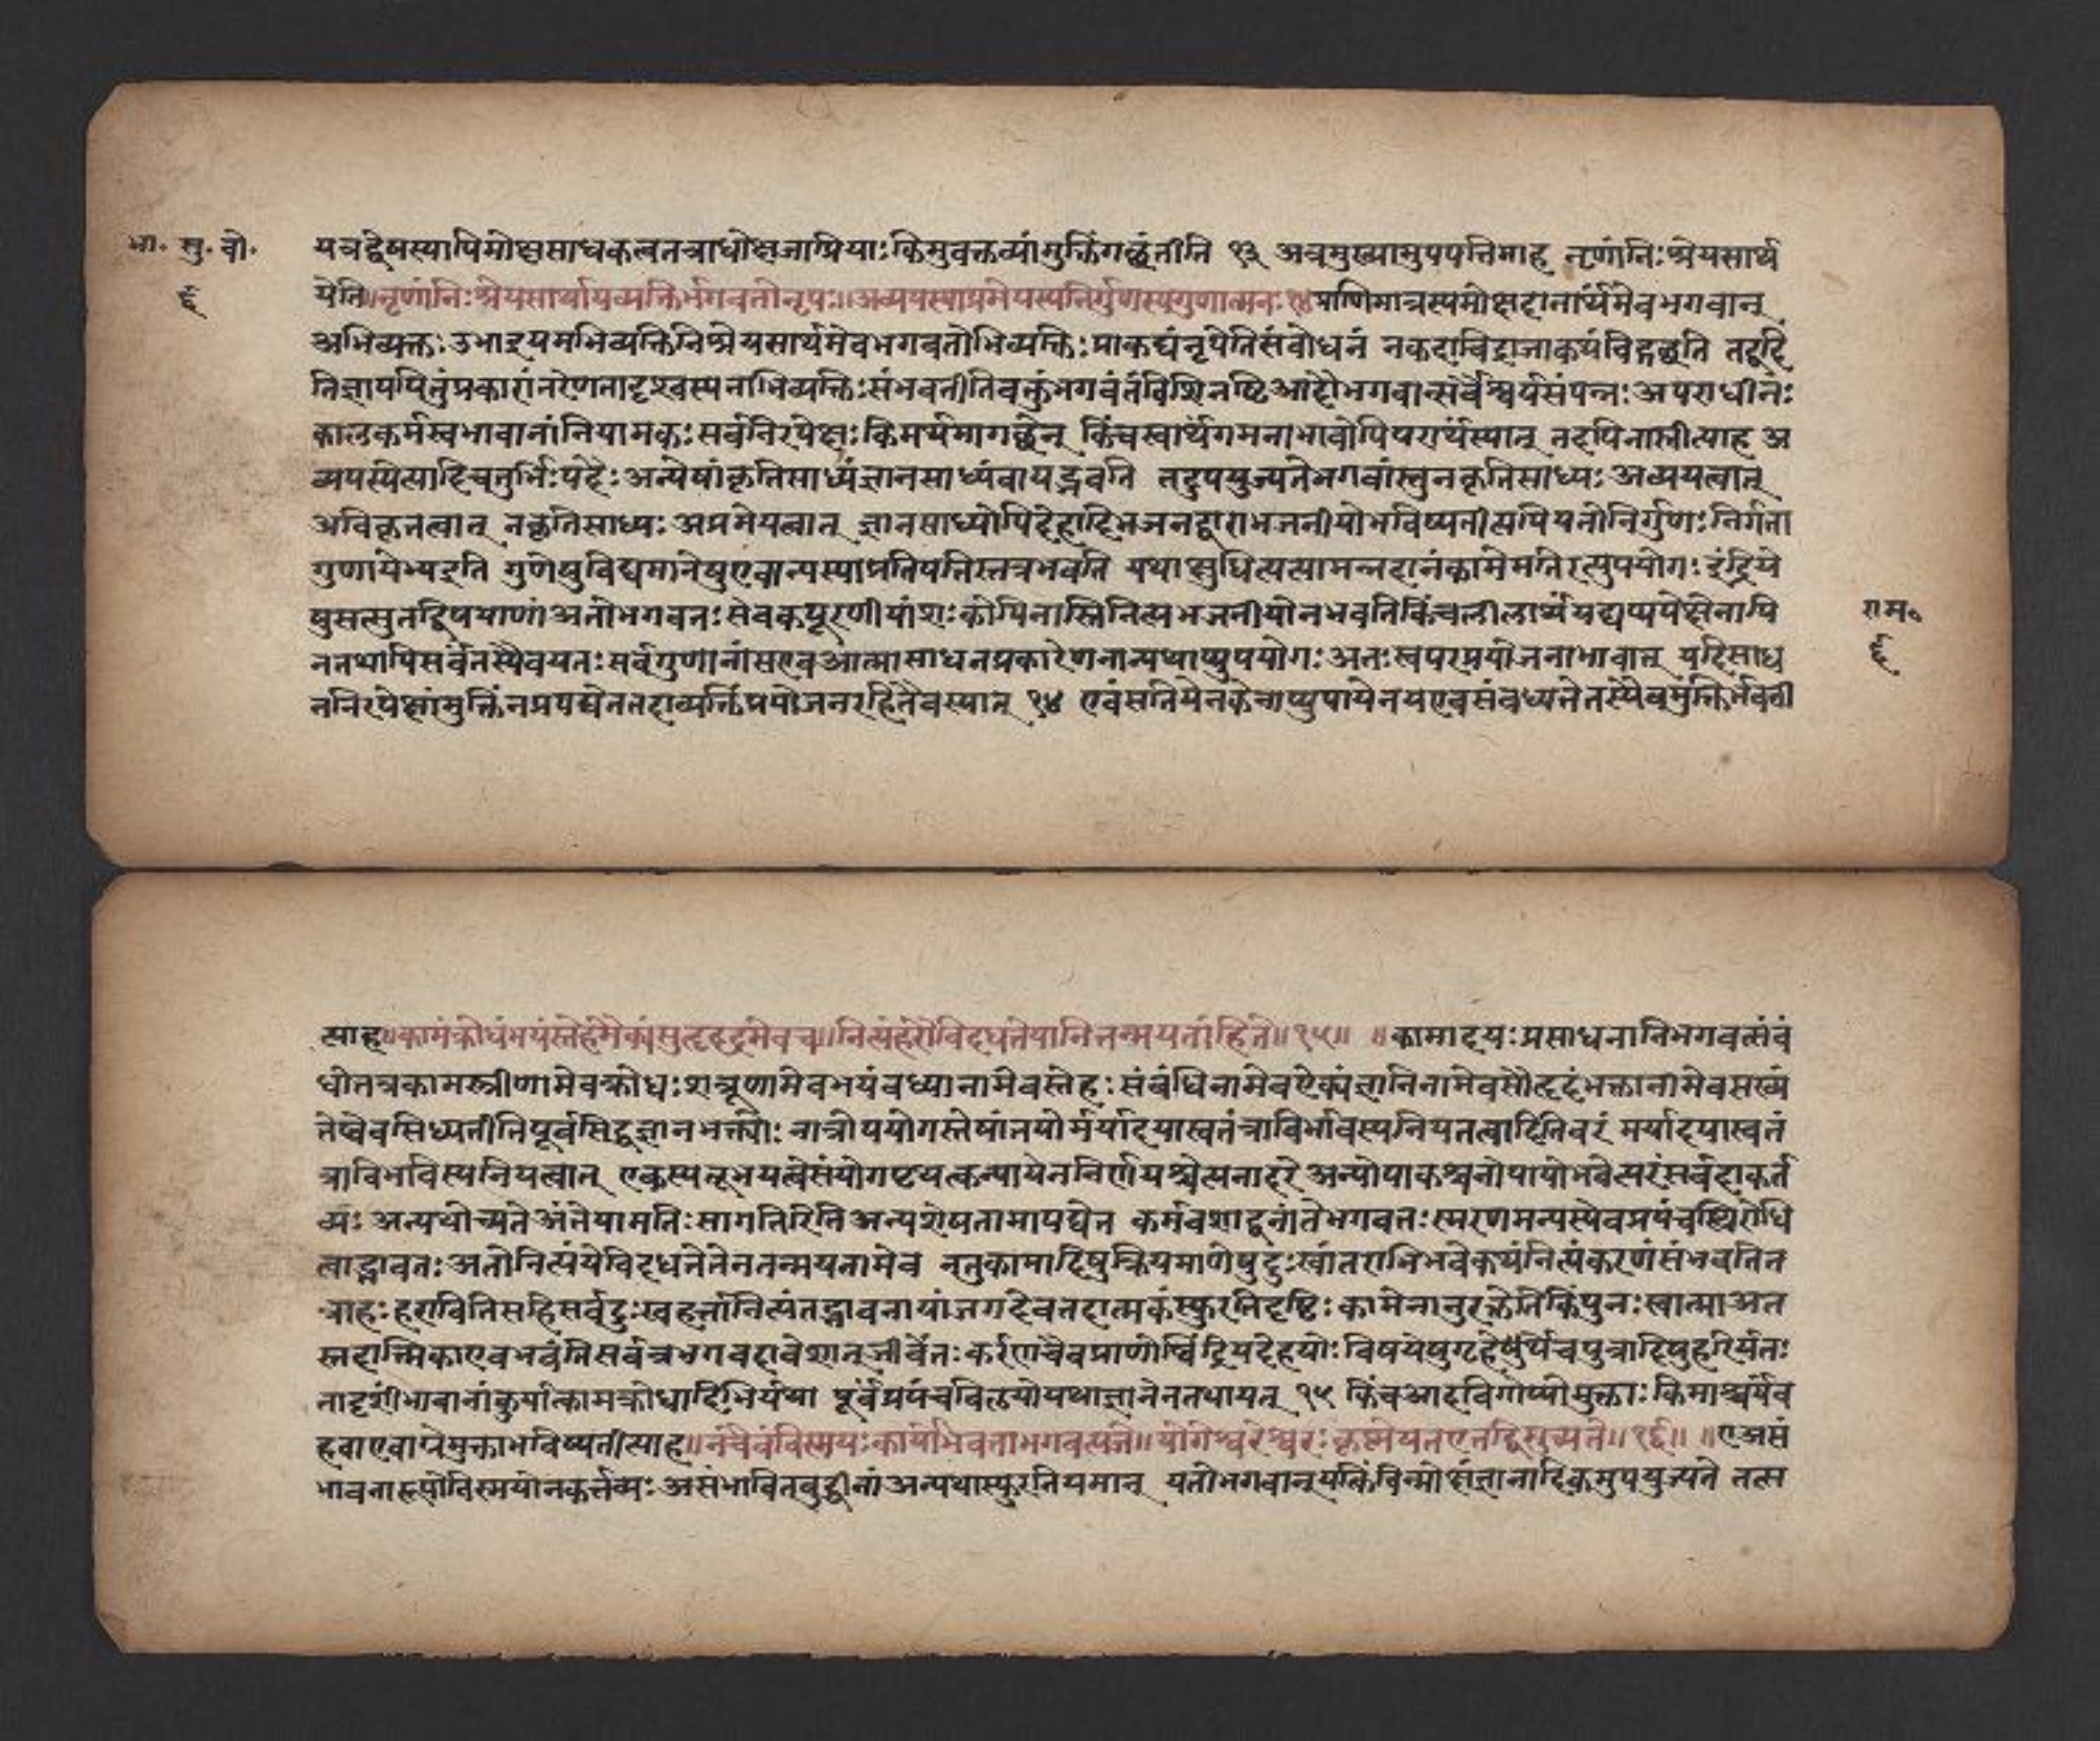 भा. सु. बो.
६
यत्रद्वेषस्यापिमोक्षसाधकत्वतत्राधोक्षजप्रियाः किमुवक्तव्यांमुक्तिंगछंतीति १३ अत्रमुख्यामुपपत्तिमाह नृणांनिःश्रेयसार्थ
येति॥नृणांनिःश्रेयसार्थायव्यक्तिर्भगवतोनृप॥अव्ययस्याप्रमेयस्यनिर्गुणस्यगुणात्मनः१४प्राणिमात्रस्यमोक्षदानार्थमेवभगवान्
अभिव्यक्तः उभाइयमभिव्यक्तिनिश्रेयसार्थमेवभगवतोभिव्यक्तिः प्राकट्यंनृपेतिसंबोधनं नकदाचिद्राजाकथंचिद्गछति तद्वदि
तिज्ञापयितुंप्रकारांतरेणतादृशस्यनाभिव्यक्तिः संभवतीतिवक्तुंभगवंतंविशिनष्टिआदौभगवान्सर्वैश्वर्यसंपन्नः अपराधीनः
कालकर्मस्वभावानांनियामकः सर्वनिरपेक्षः किमर्थमागछेत् किंचस्वार्थगमनाभावेपिपरार्थस्यात् तदपिनास्तीत्याह अ
व्ययस्येत्यादिचतुर्भिः पदैः अन्येषांकृतिसाध्यंज्ञानसाध्यंवायद्भवति तदुपयुज्यतेभगवांस्तुनकृतिसाध्यः अव्ययत्वात्
अविकृतत्वात् नकृतिसाध्यः अप्रमेयत्वात् ज्ञानसाध्योपिदेहादिभजनद्वाराभजनीयोभविष्यतीत्यपियतोनिर्गुणः निर्गता
गुणायेभ्यइति गुणेषुविद्यमानेषुएवान्यस्याप्रतिपत्तिस्तत्रभवति यथाक्षुधितत्यत्यामन्नदानंकामेमतेरत्युपयोगः इंद्रिये
षुसत्सुतद्विषयाणां अतोभगवतः सेवकपूरणीयांशः कोपिनास्तिनित्यभजनीयोनभवतिकिंचलीलार्थंयद्यप्यपेक्षेतापि
ननथापिसर्वतस्यैवयतः सर्वगुणानांसएवआत्मासाधनप्रकारेणनान्यथाप्युपयोगः अतः स्वपरप्रयोजनाभावात् यदिसाध
ननिरपेक्षांमुक्तिंनप्रपद्येततदाव्यक्तिंप्रयोजनरहितैवस्यात् १४ एवंसतियेनकेनाप्युपायेनयएवसंबध्यतेतस्यैवमुक्तिर्भवती
राम॰
६
त्याह॥कामंक्रोधंभयंस्नेहंमैक्यंसुहृदमेवच॥नित्यंहरौविदधतेयांतितन्मयतांहिते॥१५॥ ॥कामादयः प्रसाधनानिभगवत्संबं
धीतत्रकामस्त्रीणामेवक्रोधः शत्रूणामेवभयंवध्यानामेवस्नेहः संबंधिनामेवऐक्यंज्ञानिनामेवसौहृदंभक्तानामेवसख्यं
तेष्वेवसिध्यतीतिपूर्वसिद्धज्ञानभक्त्योः नात्रोपयोगस्तेषांतयोर्मर्यादयास्वतंत्राविर्भावस्यनियतत्वादितिवरं मर्यादयास्वतं
त्राविर्भावस्यनियत्वात् एकस्यतूभयत्वेसंयोगपृथक्त्वन्यायेननिर्णयश्चेत्यनादरे अन्योपाकश्चनोपायोभवेत्परंसर्वदाकर्त
व्यः अन्यथोच्यते अंतेयामतिः सागतिरिति अन्यशेषतामापद्येत कर्मवशाद्वूनांतेभगवतः स्मरणमन्यस्येवप्रपंचस्यिरोधि
त्वाद्भावतः अतोनित्यंयेविदधतेतेनतन्मयतामेव नतुकामादिषुक्रियमाणेषुदुःखांतराभिभवेकथंनित्यंकरणंसंभवतित
त्राहः हरावितिसहिसर्वदुःखहर्त्तानित्यंतद्भावनायांजगदेवतदात्मकंस्फुरतिदृष्टिः कामेनानुरक्तेतिकिंपुनः स्वात्माअत
स्तदात्मिकाएवभवंतिसर्वत्रभगवदावेशात्जीवेतः करणेचैवप्राणेष्विंद्रियदेहयोः विषयेषुगृहेष्वर्थेचपुत्रादिषुहरिर्यतः
तादृशींभावानांकुर्यात्कामक्रोधादिभिर्यथा पूर्वंप्रपंचविलयोयथाज्ञानेनतथायत् १५ किंचआदविगोप्योमुक्ताः किमाश्चर्यंव
हवाएवापेमुक्ताभविष्यतीत्याह॥नचैवंविस्मयः कार्योभवताभगवत्यजे॥योगेश्वरेश्वरः कृष्णेयतएतद्विमुच्यते॥१६॥ ॥एअसं
भावनारूपोविस्मयोनकर्त्तव्यः असंभावितबुद्धीनांअन्यथास्फुरतियमात् यतोभगवान्यत्किंचिन्मोक्षेज्ञानादिकमुपयुज्यते तत्स